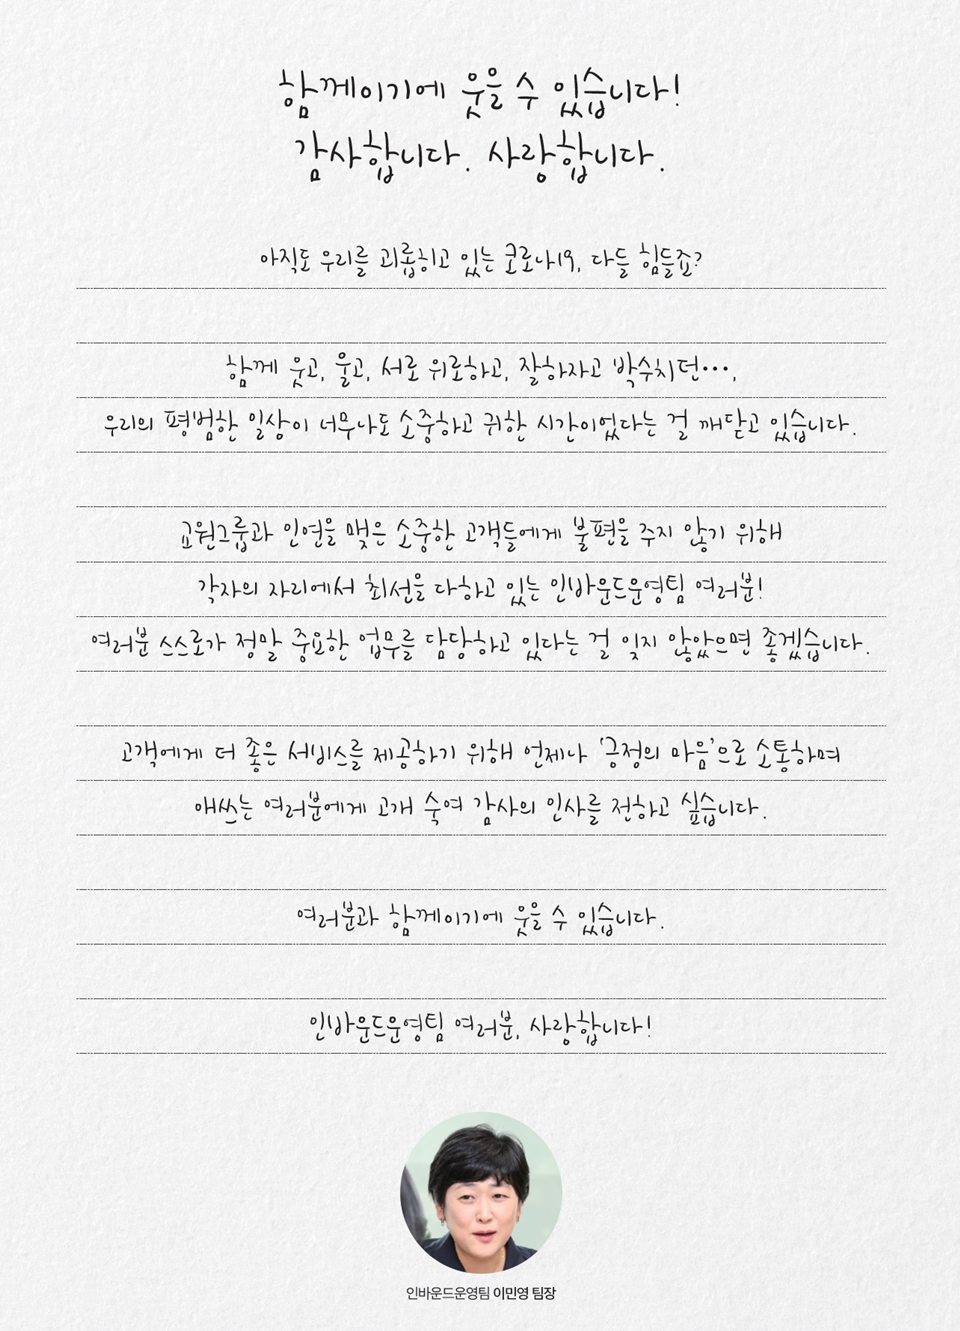 함께이기에 웃을 수 있습니다!
감사합니다. 사랑합니다.
아직도 우리를 괴롭히고 있는 코로나19, 다들 힘들죠?
함께 웃고, 울고, 서로 위로하고, 잘하자고 박수치던···,
우리의 평범한 일상이 너무나도 소중하고 귀한 시간이었다는 걸 깨닫고 있습니다.
교원그룹과 인연을 맺은 소중한 고객들에게 불편을 주지 않기 위해
각자의 자리에서 최선을 다하고 있는 인바운드운영팀 여러분!
여러분 스스로가 정말 중요한 업무를 담당하고 있다는 걸 잊지 않았으면 좋겠습니다.
고객에게 더 좋은 서비스를 제공하기 위해 언제나 ‘긍정의 마음’으로 소통하며
애쓰는 여러분에게 고개 숙여 감사의 인사를 전하고 싶습니다.
여러분과 함께이기에 웃을 수 있습니다.
인바운드운영팀 여러분, 사랑합니다!
인바운드운영팀 이민영 팀장